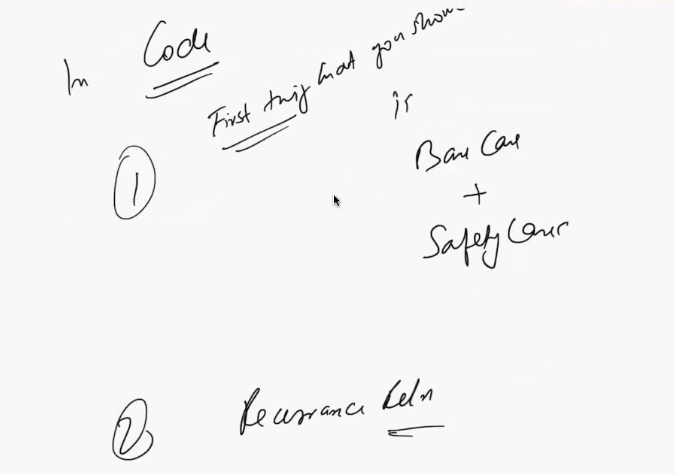 In Code
First thing that you show
is
Base Case
+
Safety Cover
①
② Recurrance Reln